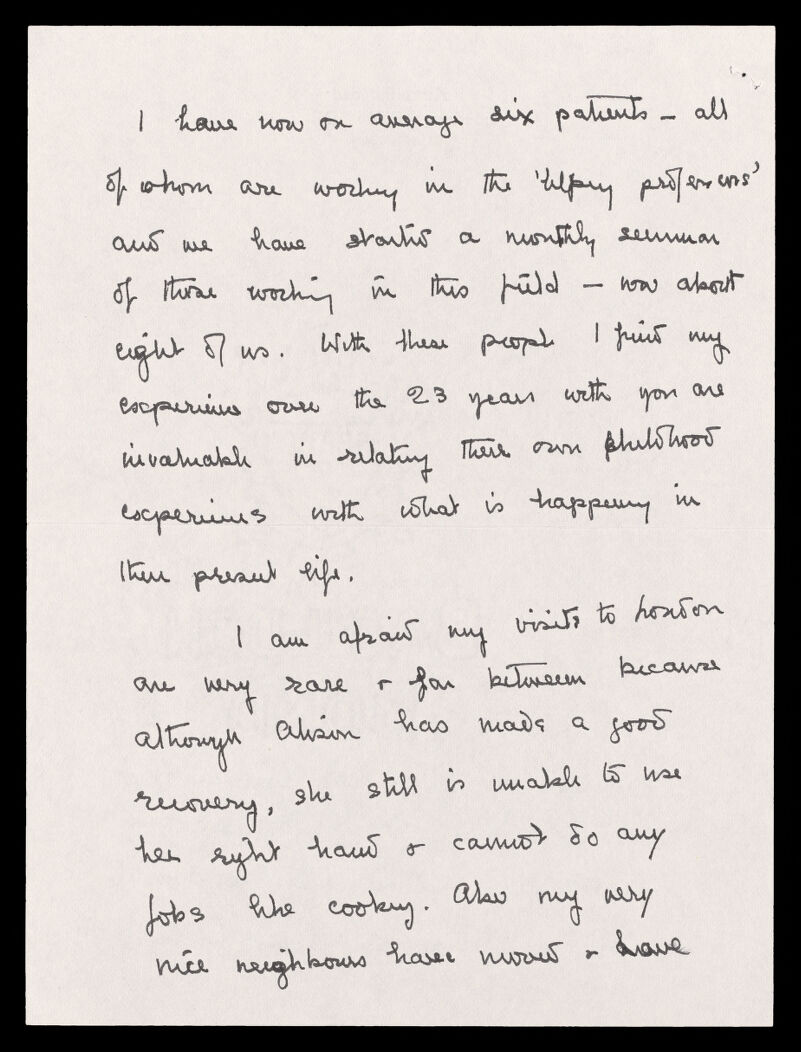 I have now on average six patients – all
of whom are working in the 'helping professions'
and we have started a monthly seminar
of those working in this field – now about
eight of us. With these people I find my
experiences over the 23 years with you are
invaluable in relating their own childhood
experiences with what is happening in
their present life.
I am afraid my visits to London
are very rare & far between because
although Alison has made a good
recovery, she still is unable to use
her right hand & cannot do any
jobs like cooking. Also my very
nice neighbours have moved & have